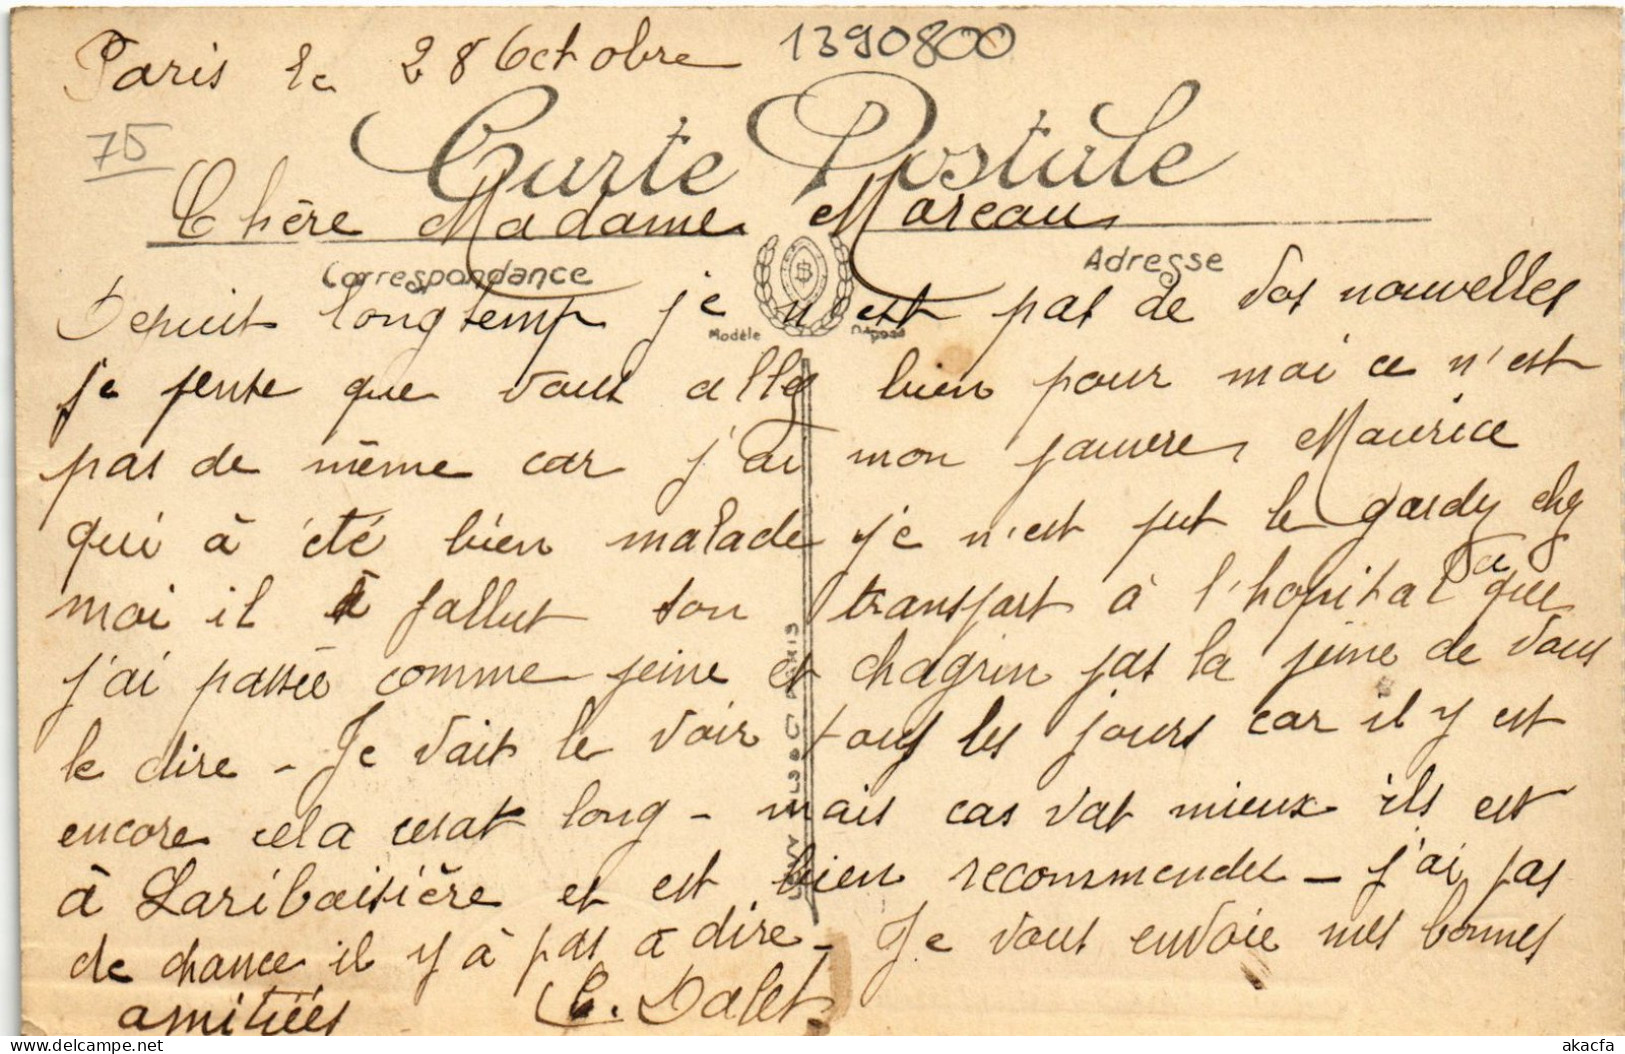 Paris le 28 Octobre 1390800
75
Carte Postale
Chère Madame Moreau
Correspondance Adresse
Depuit longtemp je n'est pas de vos nouvelles
Modèle déposé
je pense que vous allez bien pour moi ce n'est
pas de même car j'ai mon pauvre Maurice
qui à été bien malade je n'est put le gardez chez
moi il à fallut son transport à l'hopital
ce que
j'ai passée comme peine et chagrin pas la peine de vous
le dire - Je vait le voir tous les jours car il y est
encore cela cerat long - mais cas vat mieux ils est
à Lariboisière et est bien recommendet - j'ai pas
de chance il y à pas a dire - Je vous envoie mes bonnes
amitiées C. Dalet
PARIS
akacfa